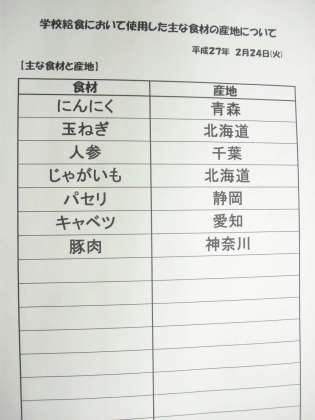 学校給食において使用した主な食材の産地について
平成27年 2月24日(火)
【主な食材と産地】
食材 産地
にんにく 青森
玉ねぎ 北海道
人参 千葉
じゃがいも 北海道
パセリ 静岡
キャベツ 愛知
豚肉 神奈川